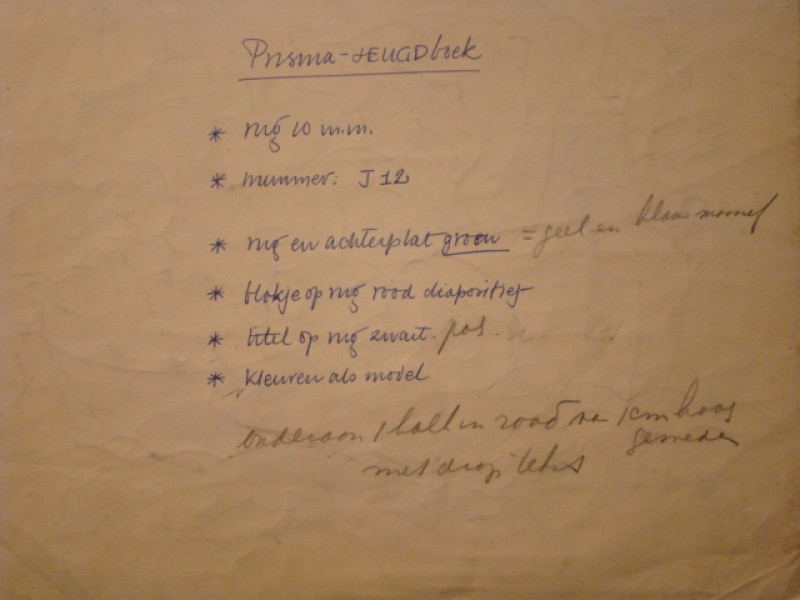 Prisma-JEUGDboek
* rug 10 m.m.
* nummer: J 12
* rug en achterplat groen = geel en blauw massief
* blokje op rug rood diapositief
* titel op rug zwart. pos.
* kleuren als model
onderaan 1 balk in rood van 1 cm hoog
met diap tekst